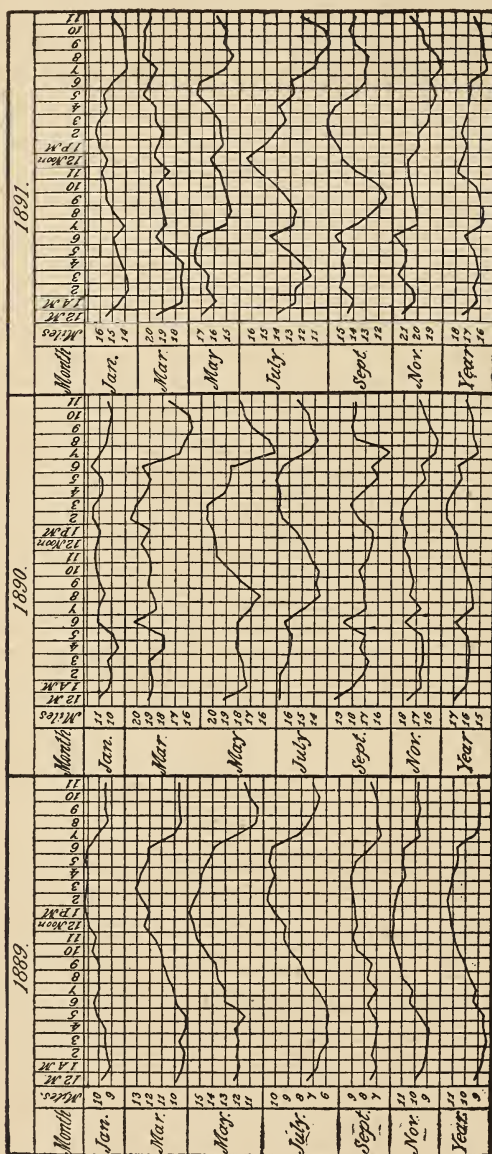 1889.
Month Miles. 12 M 1 A M 2 3 4 5 6 7 8 9 10 11 12 Noon 1 P M 2 3 4 5 6 7 8 9 10 11
Jan.
10
9
Mar.
13
12
11
10
May.
15
14
13
12
11
July.
10
9
8
7
6
Sept.
9
8
7
Nov.
11
10
9
Year.
11
10
9
1890.
Month Miles 12 M 1 A M 2 3 4 5 6 7 8 9 10 11 12 Noon 1 P M 2 3 4 5 6 7 8 9 10 11
Jan.
11
10
Mar.
20
19
18
17
16
May
20
19
18
17
16
July
16
15
14
Sept.
19
18
17
16
Nov.
18
17
16
Year
17
16
15
1891.
Month Miles 12 M 1 A M 2 3 4 5 6 7 8 9 10 11 12 Noon 1 P M 2 3 4 5 6 7 8 9 10 11
Jan.
16
15
14
Mar.
20
19
18
May
17
16
15
July
16
15
14
13
12
11
Sept.
15
14
13
12
Nov.
21
20
19
Year
18
17
16